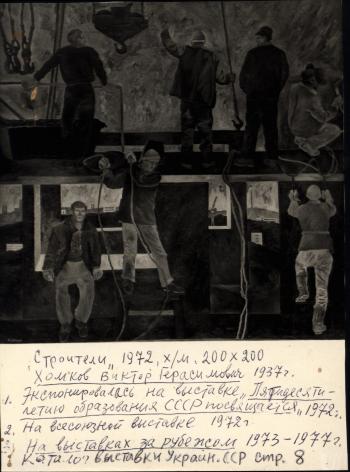 „Строители„ 1972, х/м. 200х200
Хомков Виктор Герасимович 1937г.
1. Экспонировалась на выставке „Пятидесяти-
летию образования СССР посвящается„ 1972г.
2. На всесоюзной выставке 1972г.
На выставках за рубежом 1973-1977г.
Каталог выставки Украин. ССР стр. 8